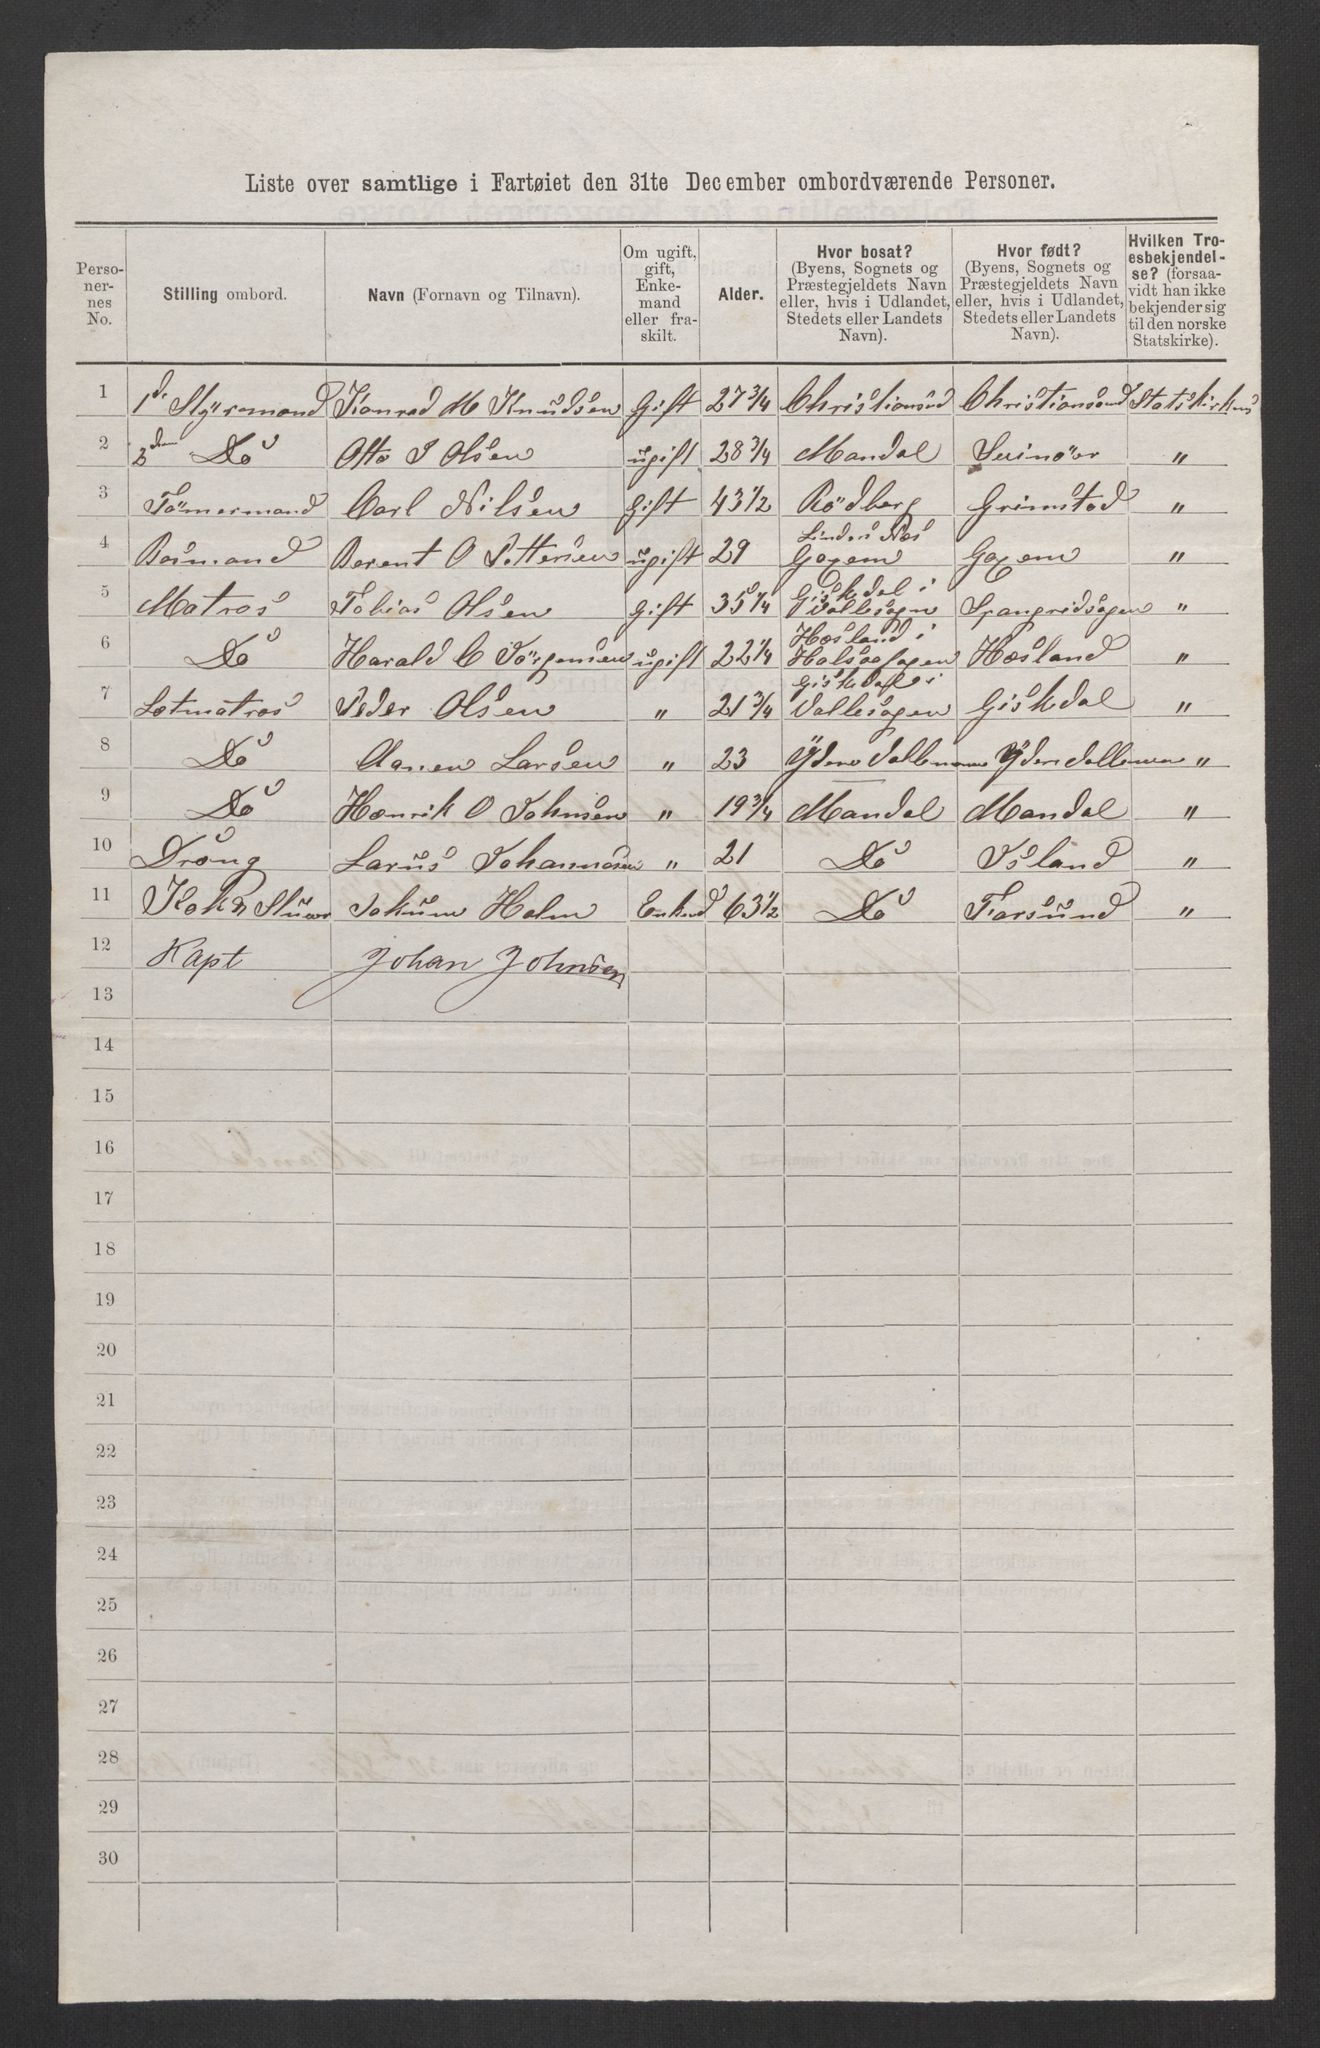 Liste over samtlige i Fartøiet den 31te December ombordværende Personer.
Perso-ner-nes No. | Stilling ombord. | Navn (Fornavn og Tilnavn). | Om ugift, gift, Enke-mand eller fra-skilt. | Alder. | Hvor bosat? (Byens, Sognets og Præstegjeldets Navn eller, hvis i Udlandet, Stedets eller Landets Navn). | Hvor født? (Byens, Sognets og Præstegjeldets Navn eller, hvis i Udlandet, Stedets eller Landets Navn). | Hvilken Tro-esbekjendel-se? (forsaa-vidt han ikke bekjender sig til den norske Statskirke).
1 | 1st Styrmand | Konrad M Knudsen | Gift | 27 3/4 | Christiansand | Christiansand | Statskirken
2 | 2den Do | Otto S Olsen | ugift | 28 3/4 | Mandal | Svinöer | "
3 | Tömermand | Carl Nilsen | Gift | 43 1/2 | Rödberg | Grimstad | "
4 | Bosmand | Berent O Pettersen | ugift | 29 | Lindes Nes Gaxem | Gaxem | "
5 | Matros | Tobias Olsen | Gift | 35 1/4 | Giskdal i Vallesogn | Spangridsogen | "
6 | Do | Harald C Jörgensen | ugift | 22 1/4 | Hesland i Halsaasogen | Hesland | "
7 | Letmatros | Peder Olsen | " | 21 3/4 | Giskdal i Vallesogen | Giskdal | "
8 | Do | Aanen Larsen | " | 23 | Ydere | Ydere | "
9 | Do | Henrik O Johnsen | " | 19 3/4 | Mandal | Mandal | "
10 | Dreng | Larus Johannesen | " | 21 | Do | Island | "
11 | Kok & Stuer | Jokum Holm | Enkmd | 63 1/2 | Do | Farsund | "
12 | Kapt | Johan Johnsen
13
14
15
16
17
18
19
20
21
22
23
24
25
26
27
28
29
30